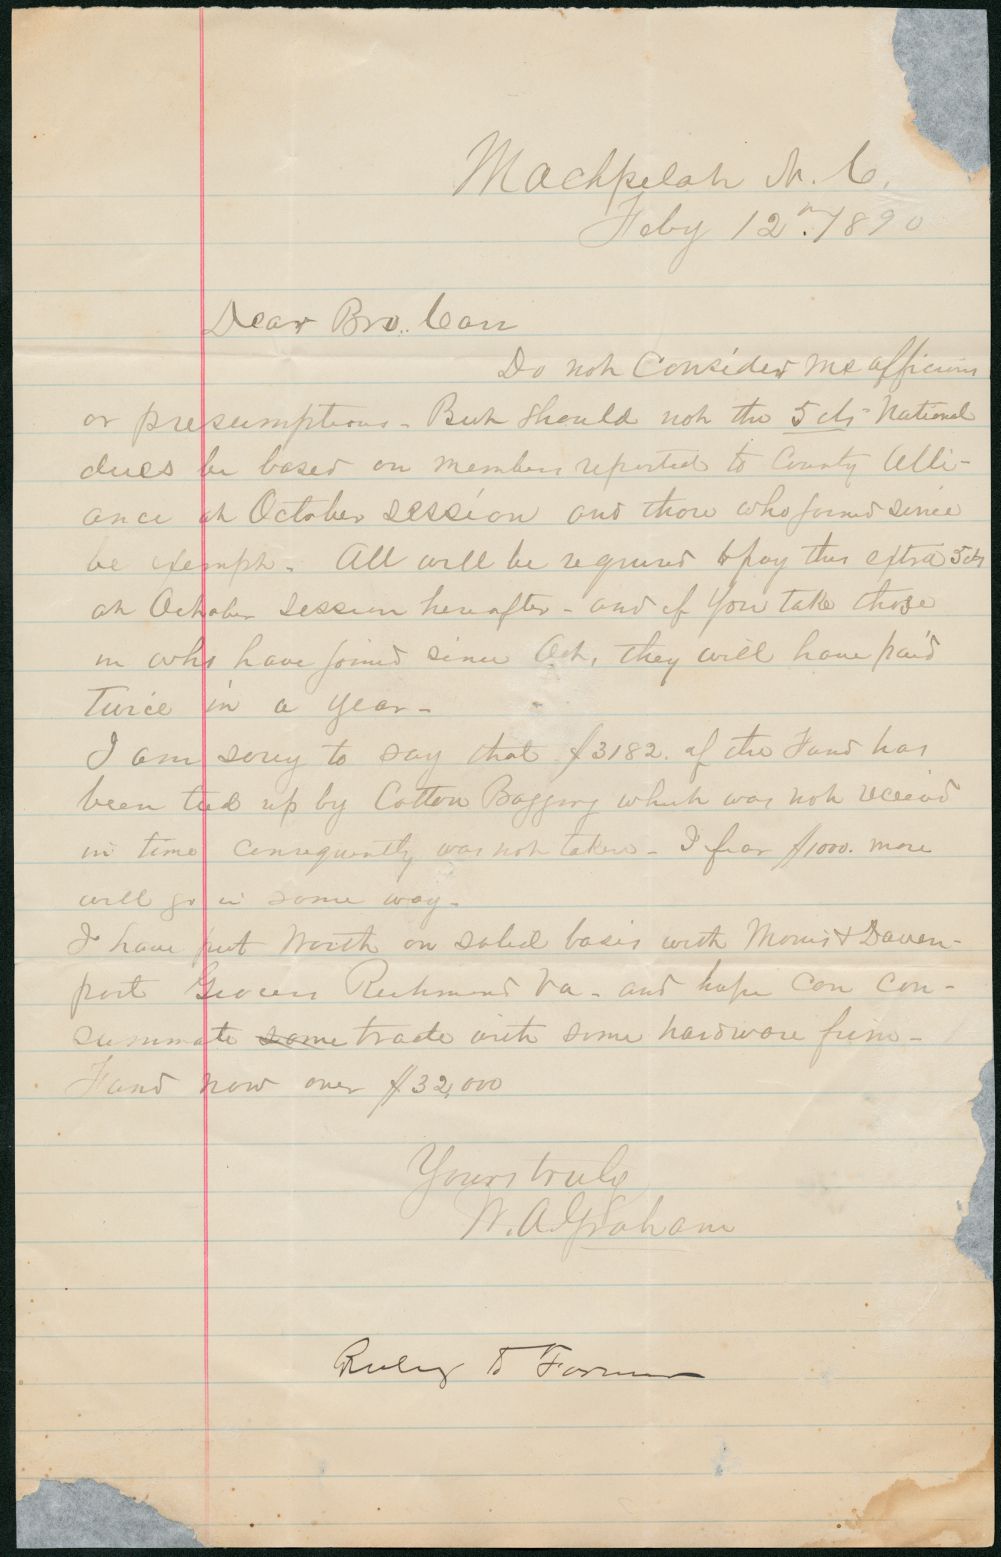 Machpelah N. C.
Feby 12th. 1890
Dear Bro. Carr
Do not Consider me officious
or presumptious - But should not the 5 cts National
dues be based on members reported to County Alli-
ance at October session and those who joined since
be exempt. All will be required to pay this extra 5 cts
at October session hereafter - and if you take those
in who have joined since Oct, they will have paid
twice in a year -
I am sorry to say that $3182. of the Fund has
been tied up by Cotton Bagging which was not receivd
in time consequently was not taken - I fear $1000. more
will go in same way -
I have put Worth on solid basis with Morris & Daven-
port Grocers Richmond Va - and hope can con-
summate some trade with some hardware firm -
Fund now over $32,000
Yours truly
W. A. Graham
Ruling to Farmer